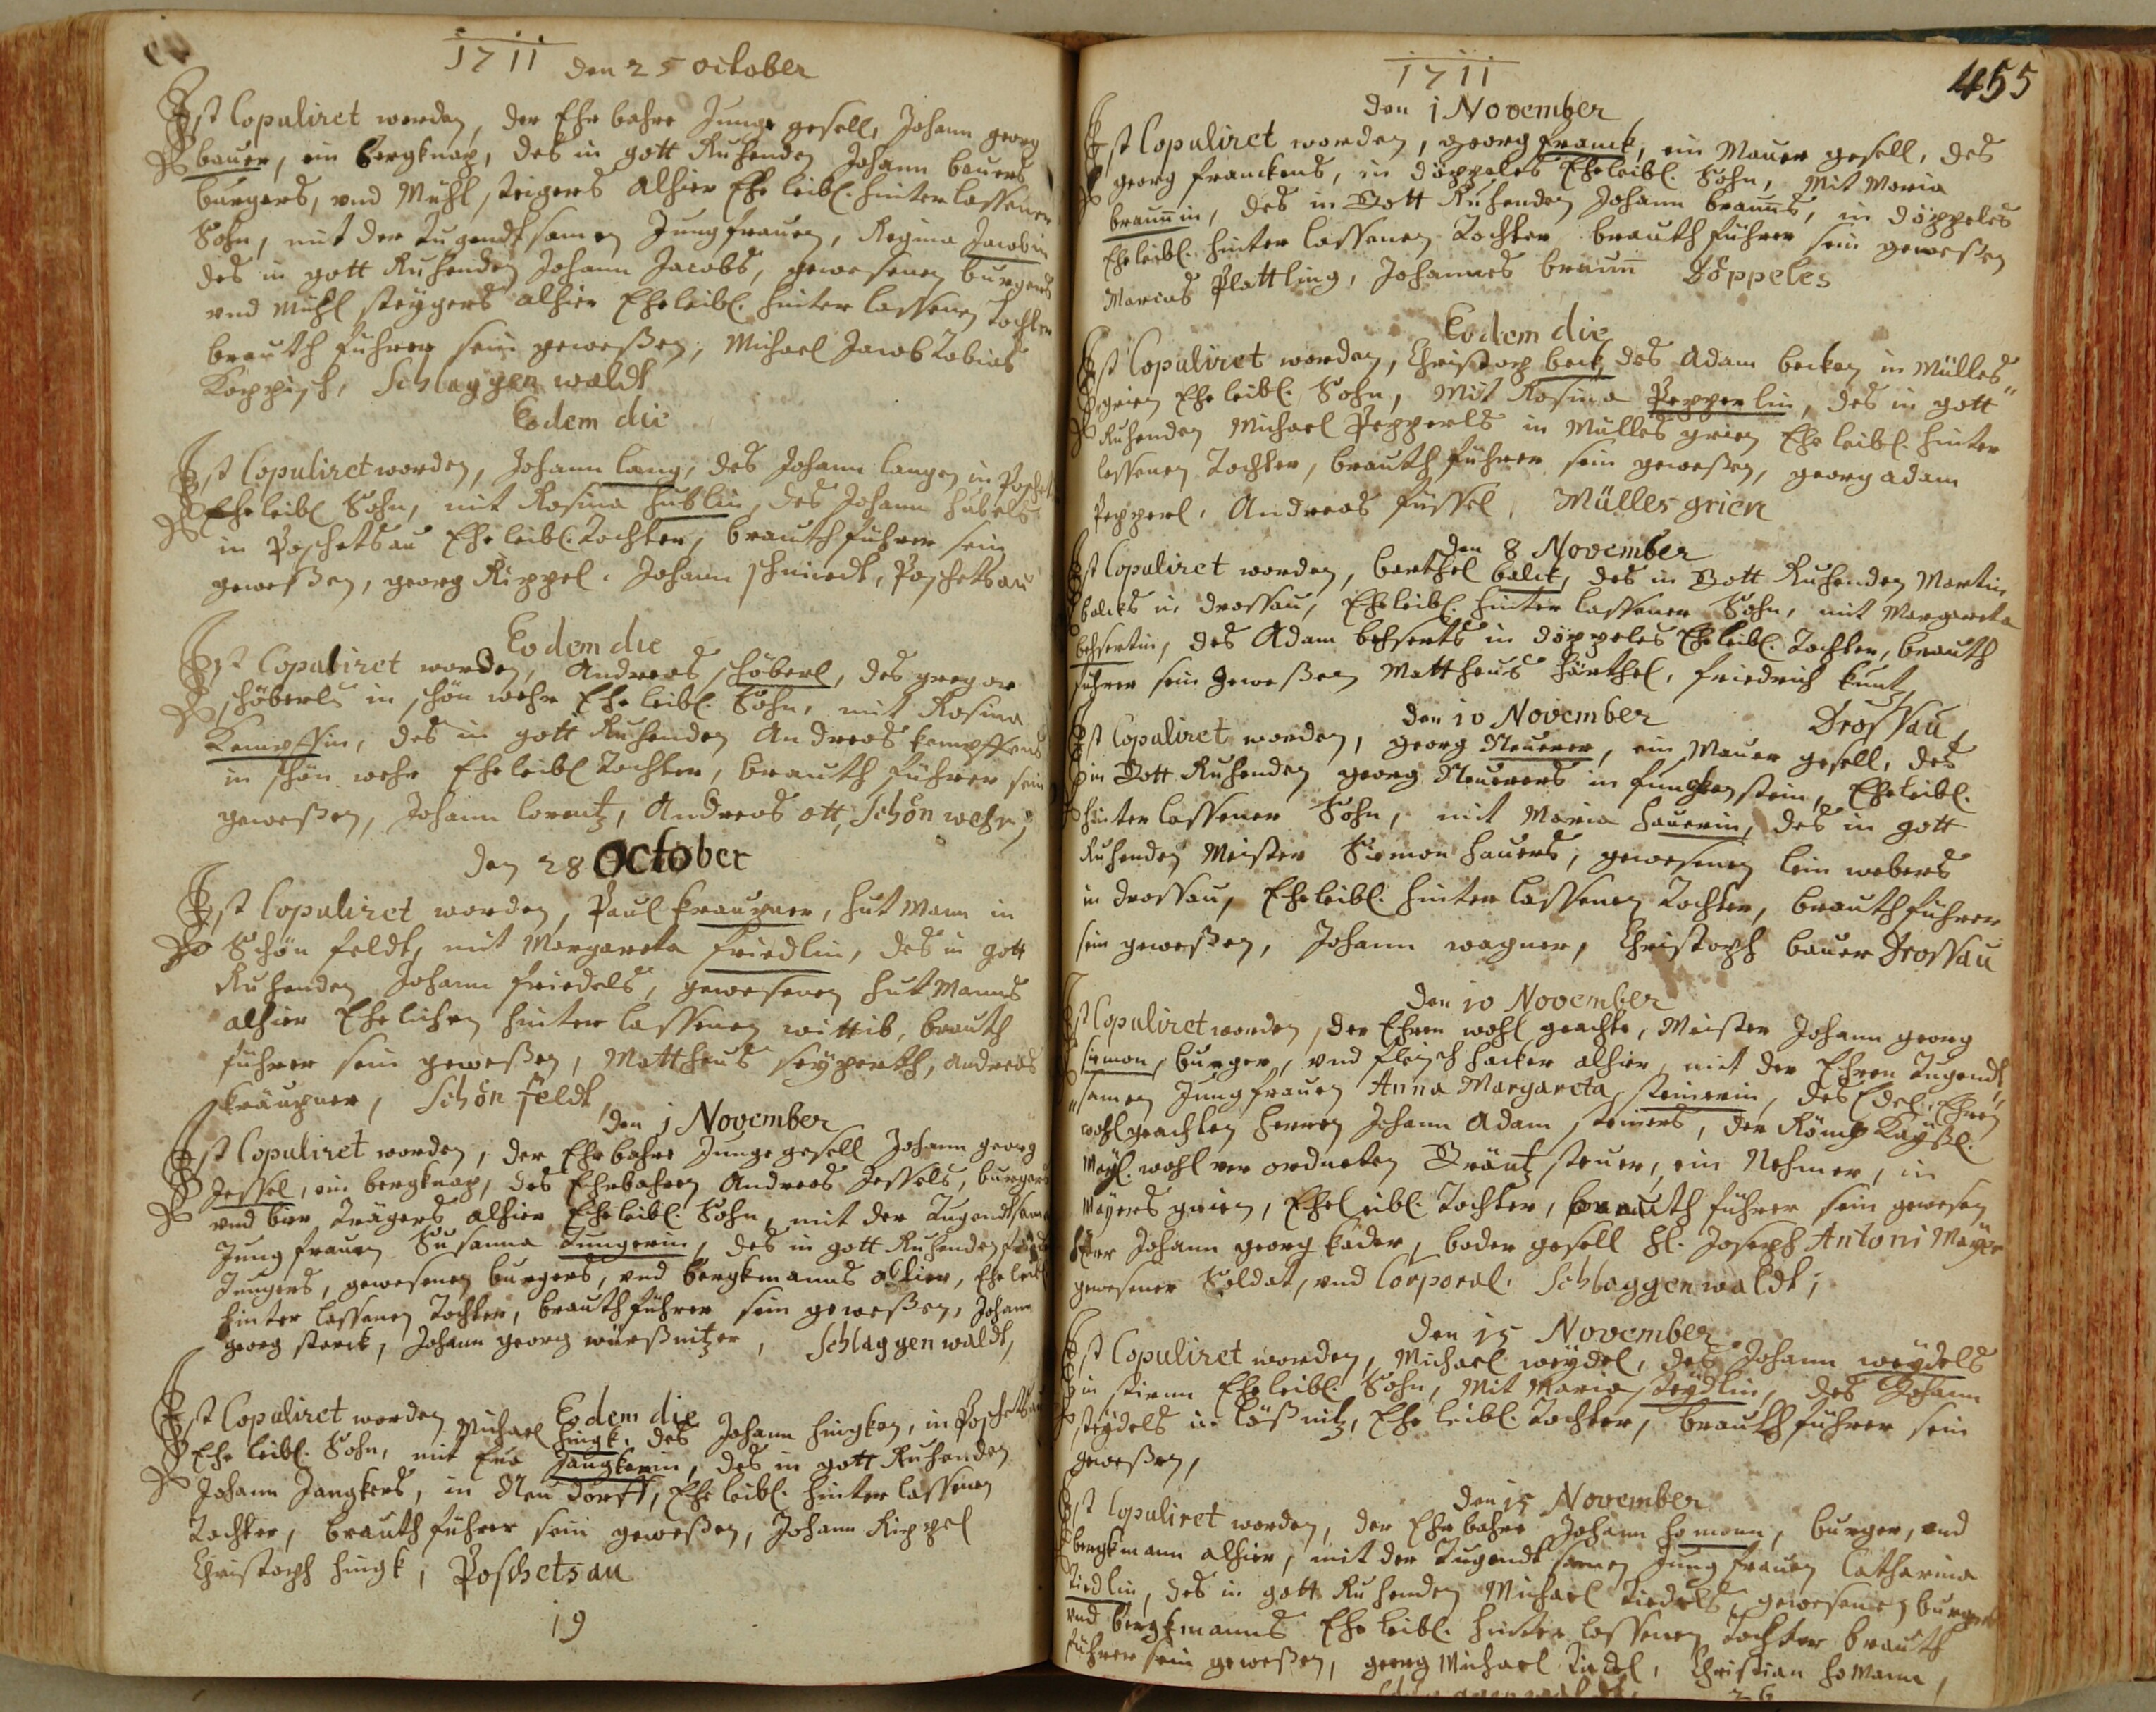 1711 den 25 october
Ist Copuliret worden, der Ehr bahre Junge gesell, Johann georg
bauer, ein bergknap, des in gott Ruhenden Johann bauers
burgers, und Muhl steigers alhier Ehe leibl. hinterlassener
Sohn, mit der Tugendtsamen Jungfrauen, Regina Jacobin
des in gott Ruhenden Johann Jacobs, gewesenen burgers
und Muhl steygers alhier Eheleibl. hinter lassenen Tochter
brauth fuhrer sein geweßen, Michael Jacob Tobias
Koppisch, Schlaggen waldt
Eodem die
Ist Copuliret worden, Johann lang, des Johann langen in
Eheleibl Sohn, mit Rosina hublin, des Johann hubels
in Poschetsau Eheleibl. Tochter, brauthfuhrer sein
geweßen, georg Rippel. Johann schmiedt, Poschetsau
Eodem die
Ist Copuliret worden, Andreas schöberl, des gregor
schöberls in schön wehr Ehe leibl. Sohn, mit Rosina
Kempffin, des in gott Ruhenden Andreas kempffens
in schön wehr Eheleibl Tochter, brauth führer sein
geweßen, Johann lorentz, Andreas ott, Schön wehr,
den 28 October
Ist Copuliret worden, Paul kraupner, hut Mann in
Schön feldt, mit Margareta friedlin, des in gott
Ruhenden Johann friedels, gewesenen hut Manns
alhier Ehelichen hinter lassenen wittib, brauth
führer sein geweßen, Mattheus seyperth, Andreas
kräupner, Schön feldt,
den 1 November
Ist Copuliret worden, der Ehrbahre Junge gesell Johann georg
Jessel, ein bergknap, des Ehrbahren Andreas Jessels, burgers
und bier Trägers alhier Eheleibl. Sohn, mit der Tugendtsamen
Jung frauen Susanna Jungerin, des in gott Ruhenden
Jungers, gewesenen burgers, und bergkmanns alhier, Eheleibl
hinter lassenen Tochter, brauthführer sein geweßen, Johann
georg starck, Johann georg würßnitzer, Schlaggen waldt,
Eodem die
Ist Copuliret worden Michael hingk, des Johann hingken, in Poschetsau
Ehe leibl. Sohn, mit Eva Jangkerin, des in gott Ruhenden
Johann Jangkers, in Neu dorff, Eheleibl. hinter lassenen
Tochter, brauth führer sein geweßen, Johann Rippel
Christoph hingk, Poschetsau
19
455
1711
den 1 November
Ist Copuliret worden, georg franck, ein Maurer gesell, des
georg franckens, in döppeles Eheleibl. Sohn, Mit Maria
braunin, des in Gott Ruhenden Johann brauns, in döppeles
Eheleibl. hinter lassenen Tochter brauth führer sein geweßen
Plattling, Johannes braun Döppeles
Eodem die
Ist Copuliret worden, Christoph beck, des Adam becken in Mülles"
grien Eheleibl. Sohn, Mit Rosina Pepperlin, des in gott
Ruhenden Michael Pepperls in Mülles grien Eheleibl. hinter
lassenen Tochter, brauth führer sein geweßen, georg adam
Pepperl, Andreas füssel, Mülles grien
den 8 November
Ist Copuliret worden, barthel balck, des in Gott Ruhenden Martin
balcks in drossau, Eheleibl. hinter lassener Sohn, mit Margareta
des Adam in döppeles Eheleibl. Tochter, brauth
führer sein geweßen Mattheus härthel, friedrich kuntz,
Drossau,
den 10 November
Ist Copuliret worden, georg Neuerer, ein Maurer gesell, des
in Gott Ruhenden georg Neuerers in fungkenstein, Eheleibl.
hinter lassener Sohn, mit Maria hauerin, des in gott
Ruhenden Meister Simon hauers, gewesenen lein webers
in drossau, Eheleibl. hinter lassenen Tochter, brauthführer
sein geweßen, Johann wagner, Christoph bauer Drossau
den 10 November
Ist Copuliret worden, der Ehren wohl geachte, Meister Johann georg
simon, burger, und fleischhacker alhier, mit der Ehren Tugendt"
"samen Jungfrauen Anna Margareta steinerin, des Edel, Ehren
wohlgeachten herren Johann Adam steiners, der Römis Kayßl.
Mayl. wohl ver ordneten Gräntz steuer, ein Nehmer, in
Mayers grien, Eheleibl. Tochter, brauth führer sein gewesen
Johann georg bader gesell H. Joseph Antoni Mayer
gewesener Soldat, und Corporal, Schlaggenwaldt,
den 15 November
Ist Copuliret worden, Michael weydel, des Johann weydels
in stirnn Eheleibl. Sohn, Mit Maria steydlin, des Johann
steydels in lößnitz, Ehe leibl. Tochter, brauth führer sein
geweßen,
den 15 November
Ist Copuliret worden, der Ehrbahre Johann homann, burger, und
bergkmann alhier, mit der Tugendt samen Jung frauen Catharina
Tiedlin, des in gott Ruhenden Michael Tiedels, gewesenen burgers
und bergkmanns Eheleibl. hinter lassenen Tochter brauth
führer sein geweßen, georg Michael Tiedel, Christian homann,